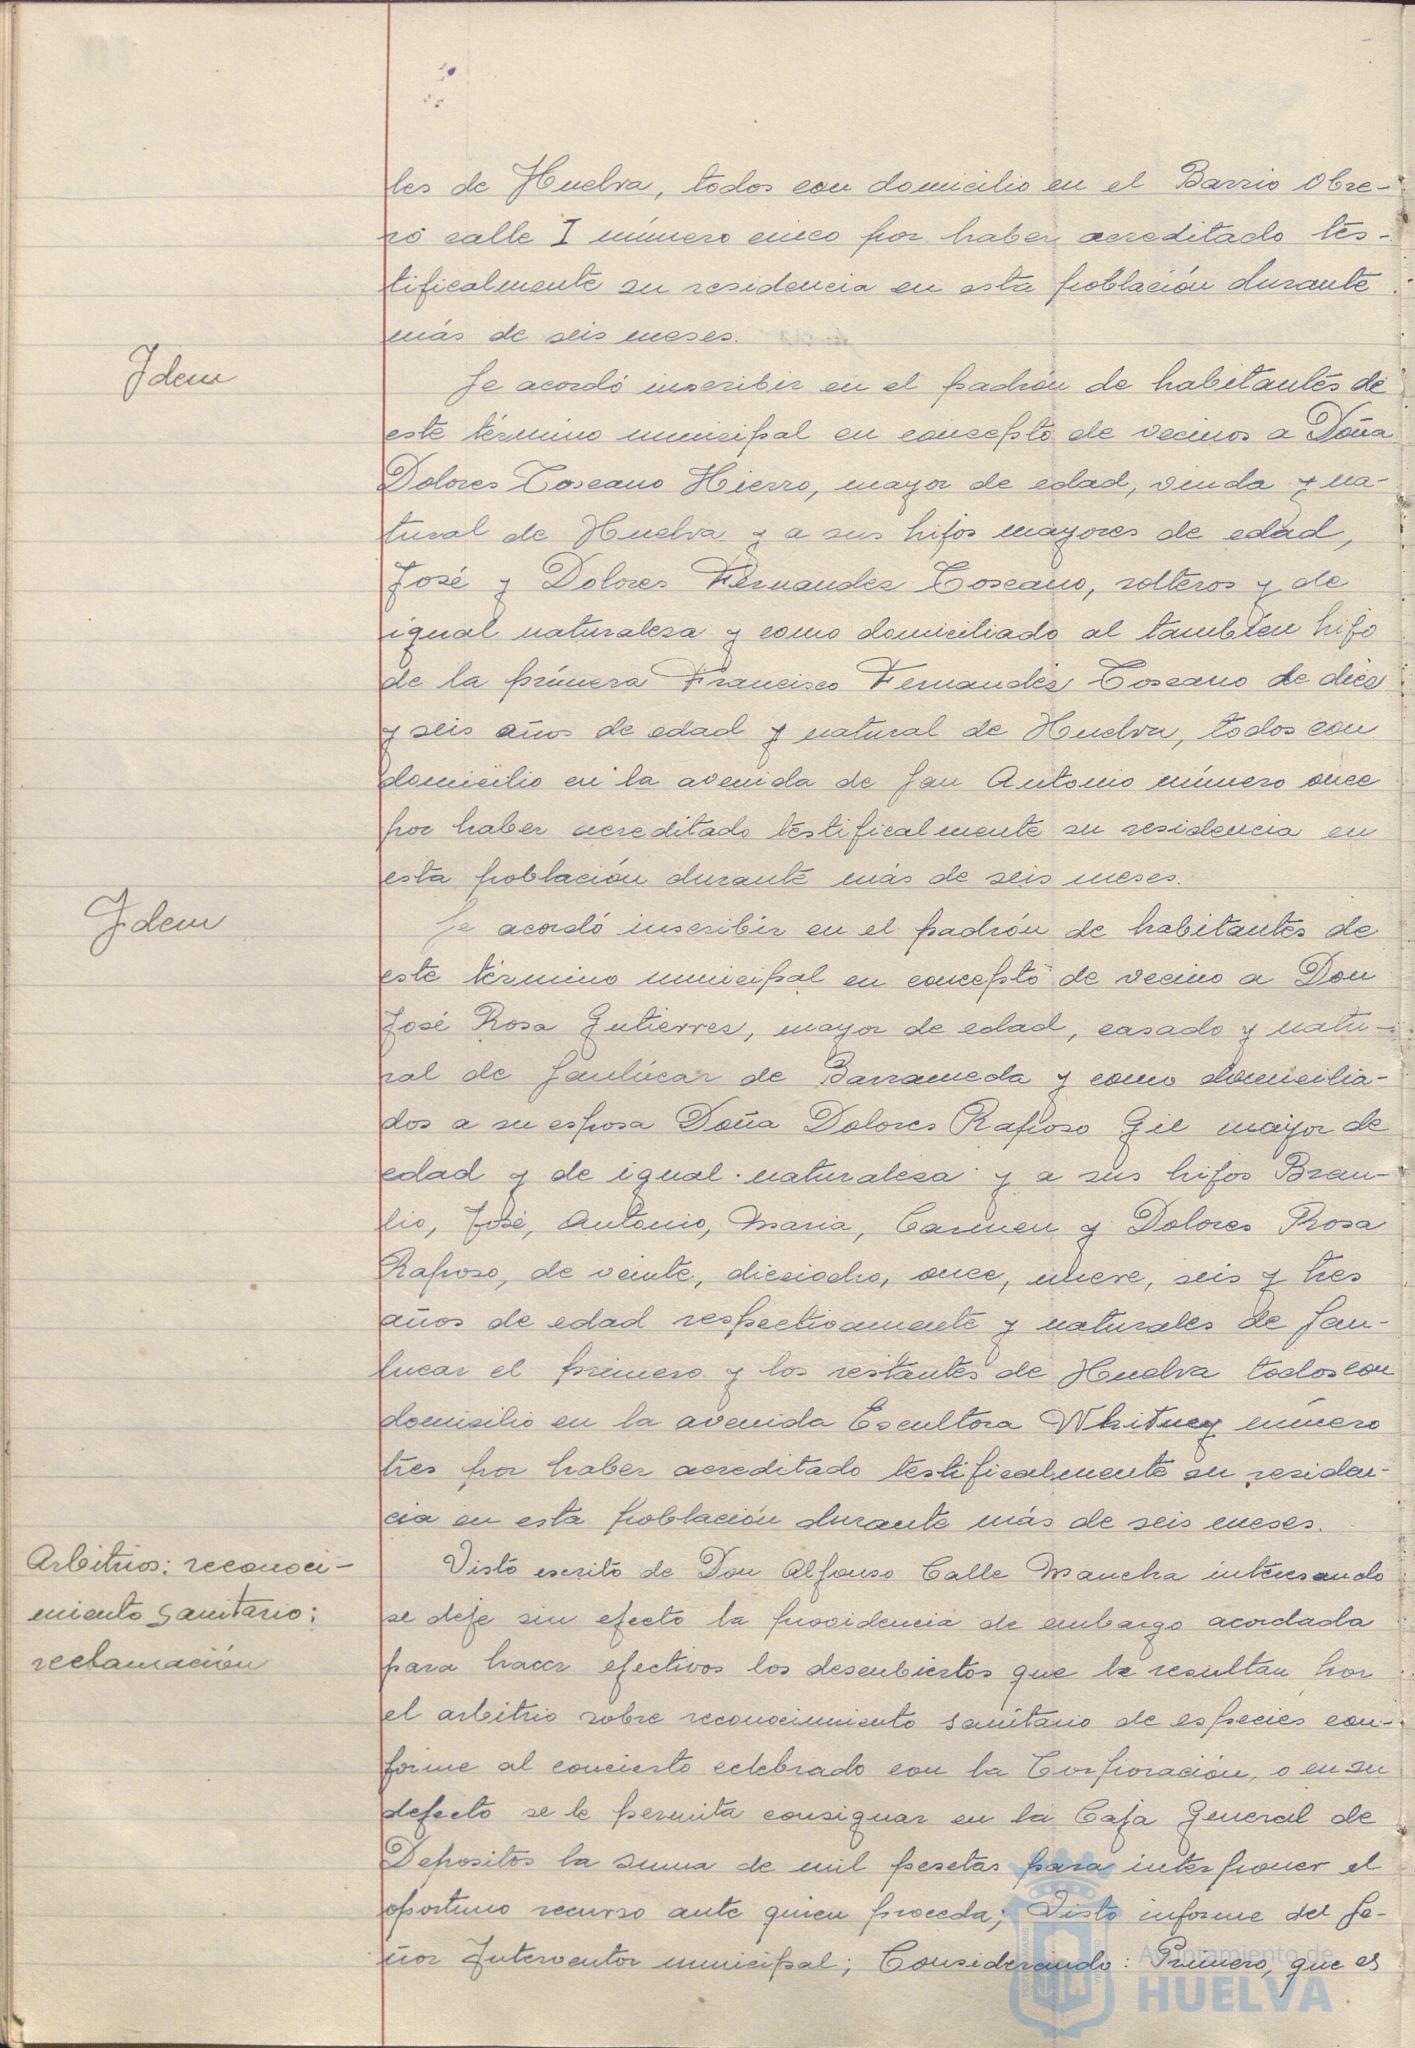 les de Huelva, todos con domicilio en el Barrio Obre-
ro calle I número cinco por haber acreditado tes-
tificalmente su residencia en esta población durante
más de seis meses.
Idem
Se acordó inscribir en el padrón de habitantes de
este término municipal en concepto de vecinos a Doña
Dolores Toscano Hierro, mayor de edad, viuda y na-
tural de Huelva y a sus hijos mayores de edad,
José y Dolores Fernandez Toscano, solteros y de
igual naturaleza y como domiciliado al también hijo
de la primera Francisco Fernandez Toscano de diez
y seis años de edad y natural de Huelva, todos con
domicilio en la avenida de San Antonio número once
por haber acreditado testificalmente su residencia en
esta población durante más de seis meses.
Idem
Se acordó inscribir en el padrón de habitantes de
este término municipal en concepto de vecino a Don
José Rosa Gutierrez, mayor de edad, casado y natu-
ral de Sanlúcar de Barrameda y como domicilia-
dos a su esposa Doña Dolores Raposo Gil mayor de
edad y de igual naturaleza y a sus hijos Brau-
lio, José, Antonio, Maria, Carmen y Dolores Rosa
Raposo, de veinte, dieciocho, once, nueve, seis y tres
años de edad respectivamente y naturales de San-
lucar el primero y los restantes de Huelva todos con
domicilio en la avenida Escultora Whitney número
tres por haber acreditado testificalmente su residen-
cia en esta población durante más de seis meses.
Arbitrios: reconoci-
miento sanitario:
reclamación
Visto escrito de Don Alfonso Calle Mancha interesando
se deje sin efecto la providencia de embargo acordada
para hacer efectivos los descubiertos que le resultan por
el arbitrio sobre reconocimiento sanitario de especies con-
forme al concierto celebrado con la Corporación, o en su
defecto se le permita consignar en la Caja General de
Depositos la suma de mil pesetas para interponer el
oportuno recurso ante quien proceda; Visto informe del Se-
ñor Interventor municipal; Considerando: Primero, que es
Ayuntamiento de
HUELVA